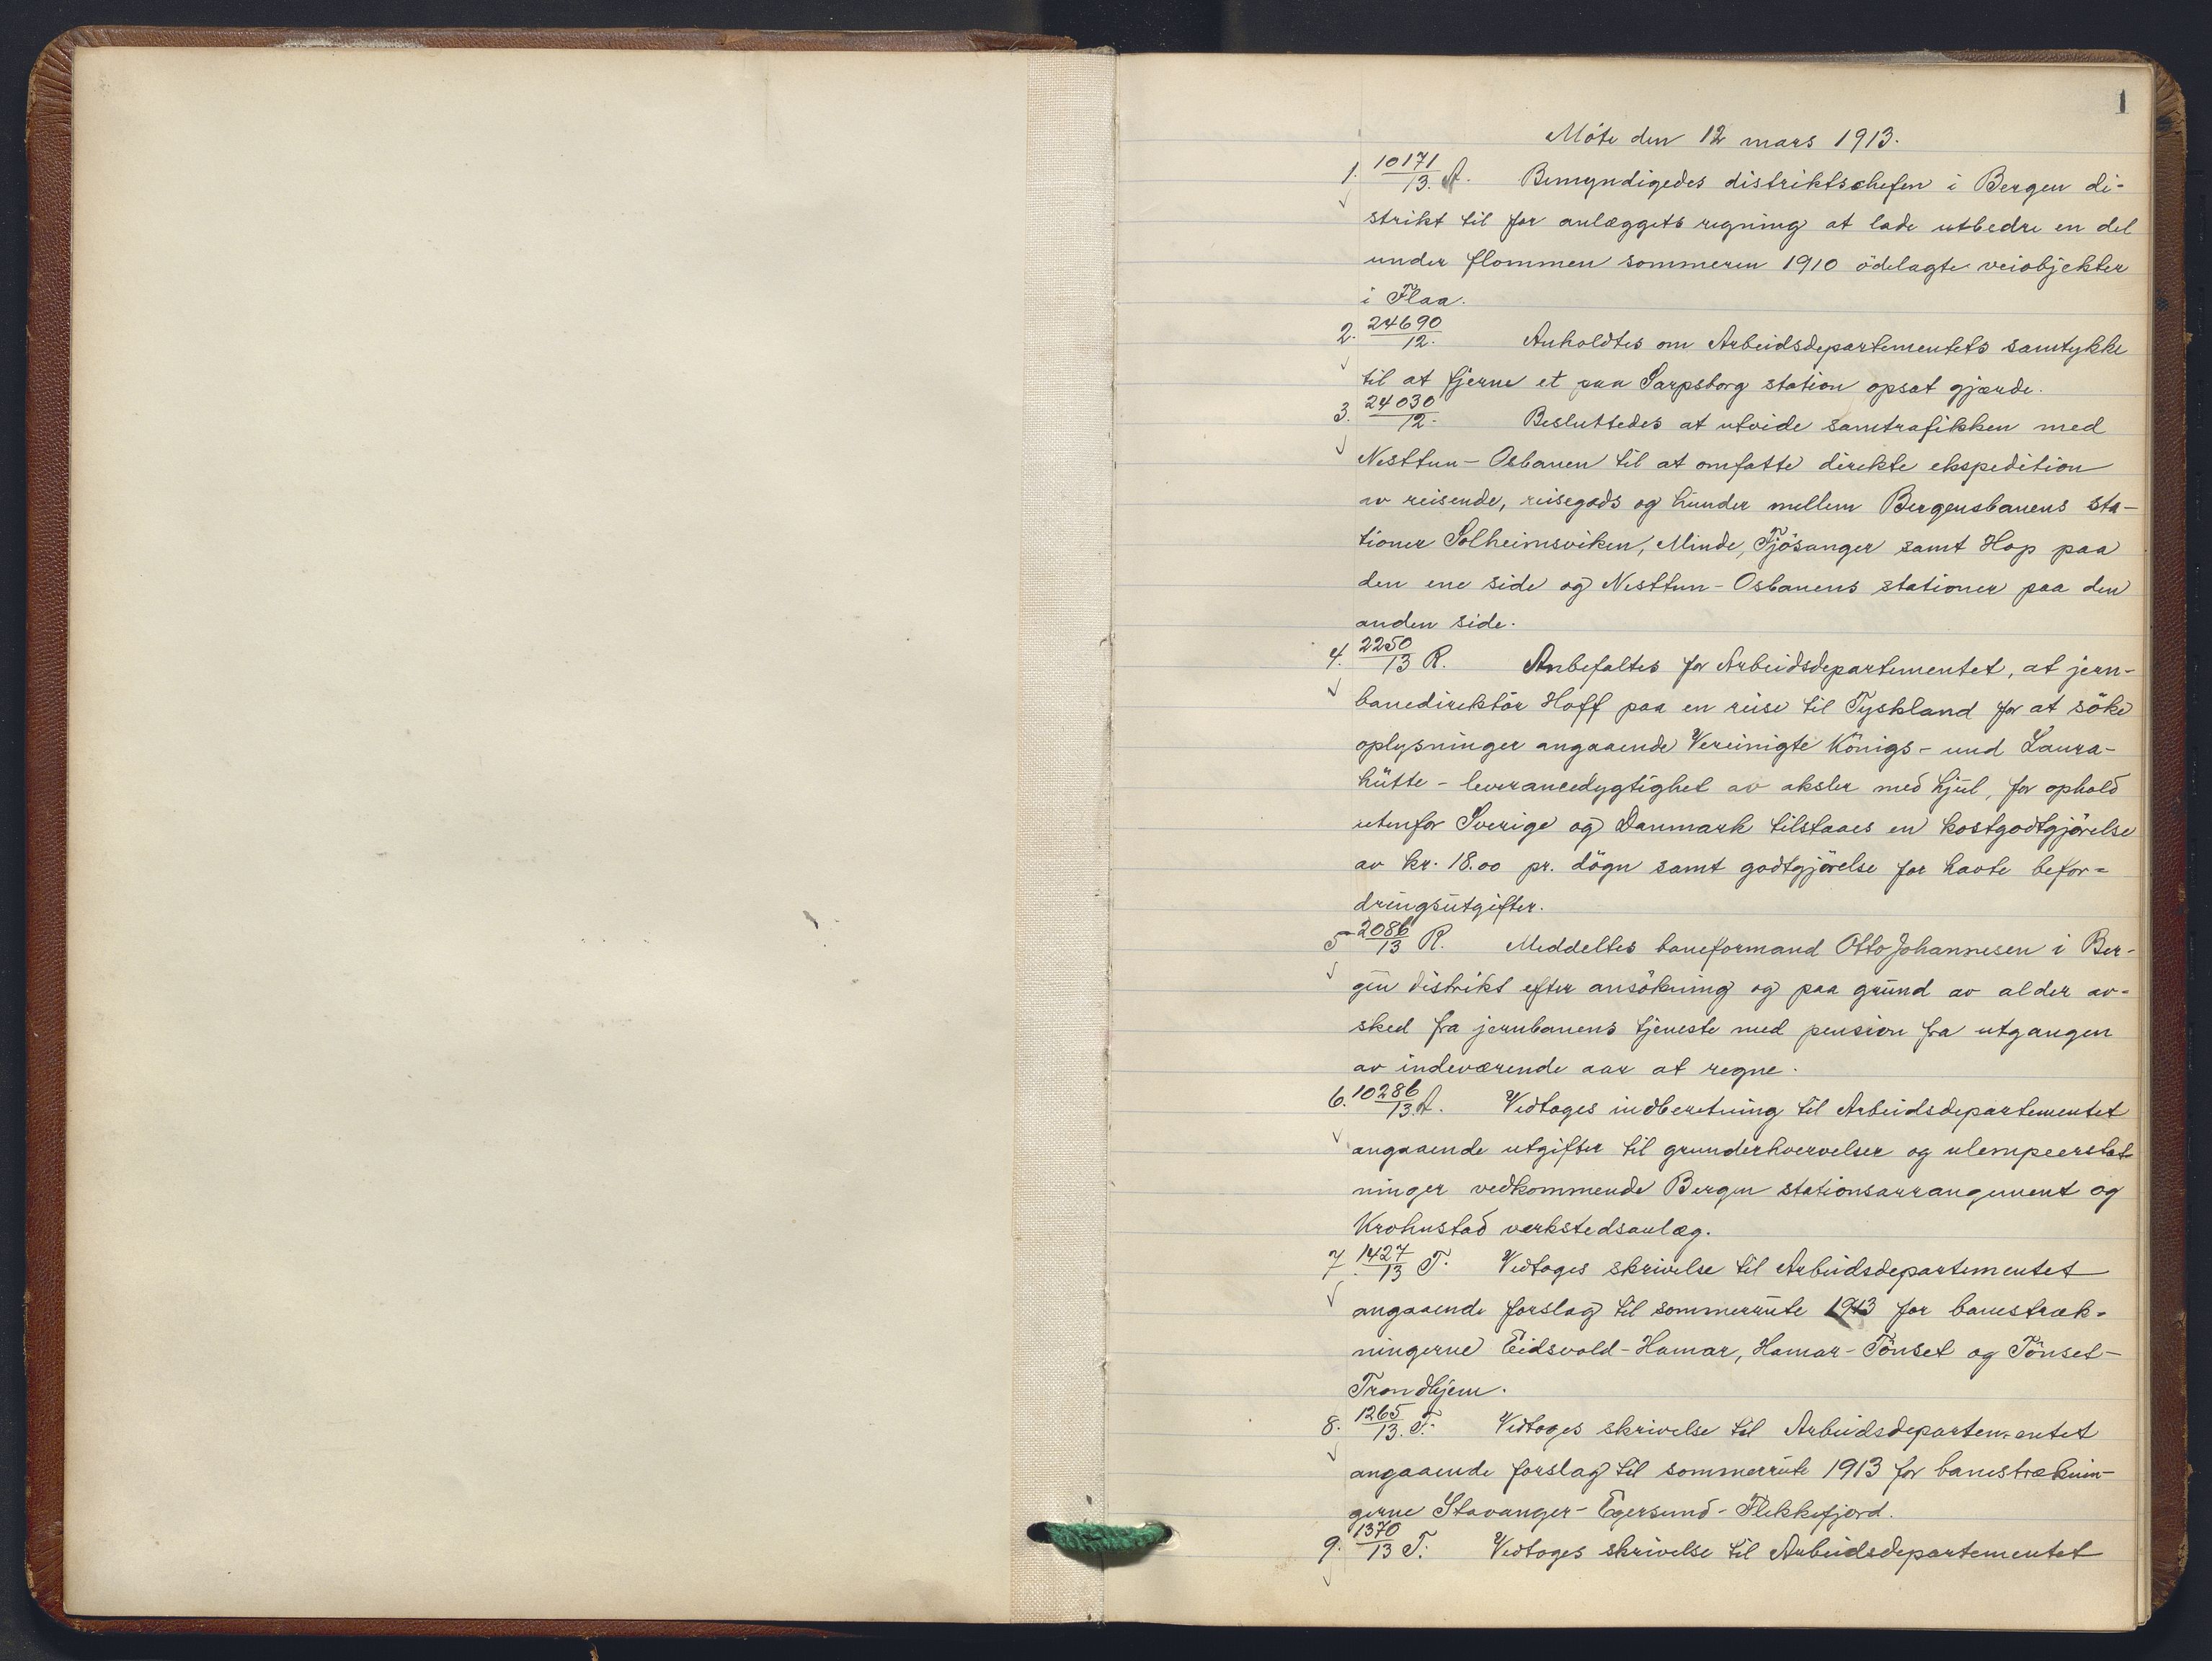 1
Möte den 12 mars 1913.
1. 10171/13. A. Bemyndigedes distriktschefen i Bergen di-
strikt til for anlæggets regning at lade utbedre en del
under flommen sommeren 1910 ödelagte veiobjekter
i Flaa.
2. 24690/12. Anholdtes om Arbeidsdepartementets samtykke
til at fjerne et paa Sarpsborg station opsat gjærde.
3. 24030/12. Besluttedes at utvide samtrafikken med
Nesttun-Osbanen til at omfatte direkte ekspedition
av reisende, reisegods og hunder mellem Bergensbanens sta-
tioner Solheimsviken, Minde, Fjösanger samt Hop paa
den ene side og Nesttun-Osbanens stationer paa den
anden side.
4. 2250/13 R. Anbefaltes for Arbeidsdepartementet, at jern-
banedirektör Hoff paa en reise til Tyskland for at söke
oplysninger angaaende Vereinigte Königs- und Laura-
hütte - leverancedygtighet av aksler med hjul, for ophold
utenfor Sverige og Danmark tilstaaes en kostgodtgjörelse
av kr. 18.00 pr. dögn samt godtgjörelse for havte befor-
dringsutgifter.
5 2086/13 R. Meddeltes baneformand Otto Johannesen i Ber-
gen distrikt efter ansökning og paa grund av alder av-
sked fra jernbanens tjeneste med pension fra utgangen
av indeværende aar at regne.
6. 10286/13 A. Vedtoges indberetning til Arbeidsdepartementet
angaaende utgifter til grunderhvervelser og ulempeerstat-
ninger vedkommende Bergen stationsarrangement og
Krohnstad verkstedsanlæg.
7. 1427/13 T. Vedtoges skrivelse til Arbeidsdepartementet
angaaende forslag til sommerrute 1913 for banestræk-
ningerne Eidsvold-Hamar, Hamar-Tönset og Tönset-
Trondhjem.
8. 1265/13. T. Vedtoges skrivelse til Arbeidsdepartementet
angaaende forslag til sommerrute 1913 for banestræknin-
gerne Stavanger-Egersund-Flekkefjord.
9. 1370/13 T. Vedtoges skrivelse til Arbeidsdepartementet